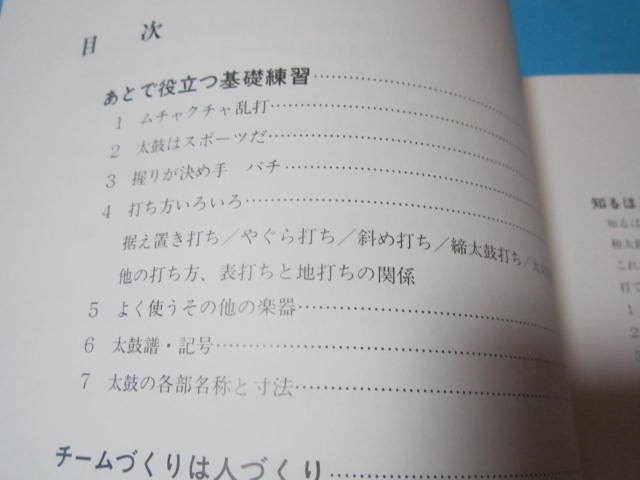 目次
あとで役立つ基礎練習
1 ムチャクチャ乱打
2 太鼓はスポーツだ
3 握りが決め手 バチ
4 打ち方いろいろ
据え置き打ち／やぐら打ち／斜め打ち／締太鼓打ち／大
他の打ち方、表打ちと地打ちの関係
5 よく使うその他の楽器
6 太鼓譜・記号
7 太鼓の各部名称と寸法
チームづくりは人づくり
知るは
知るは
和太
これ
打て
1
2
3